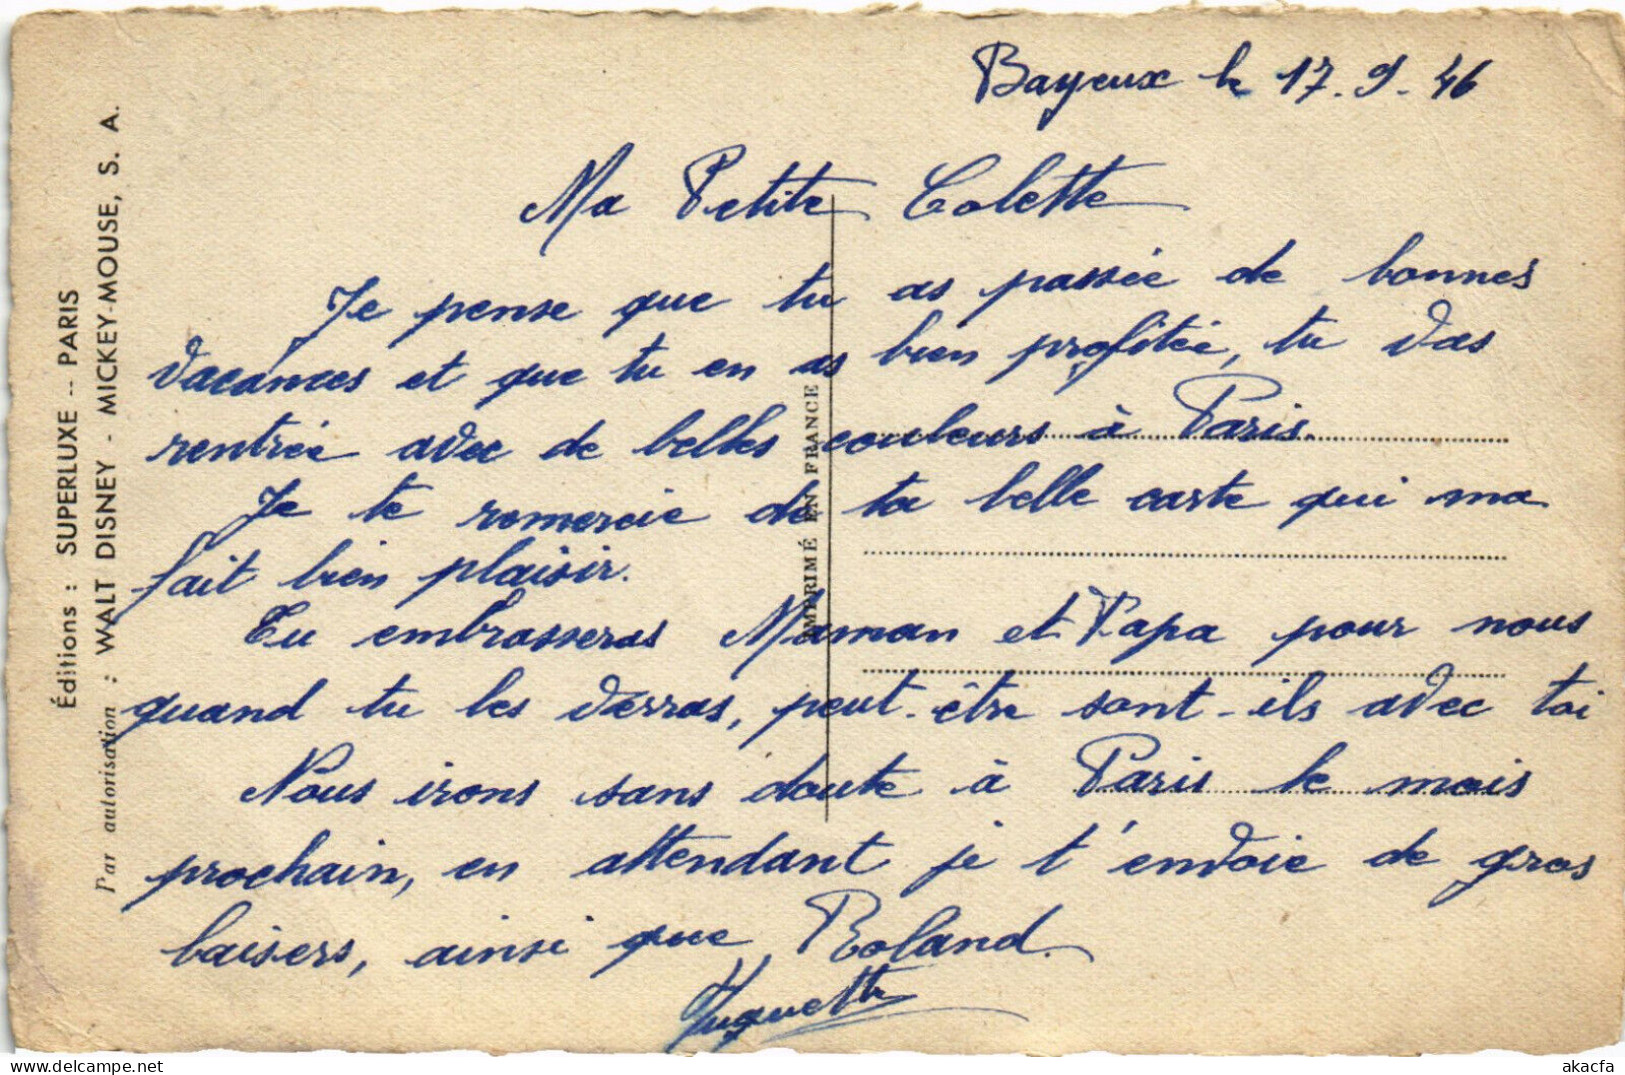 Bayeux le 17.9.46
Ma Petite Colette
Je pense que tu as passée de bonnes
vacances et que tu en as bien profitée, tu vas
rentrée avec de belles couleurs à Paris.
Je te remercie de ta belle carte qui ma
fait bien plaisir.
Tu embrasseras Maman et Papa pour nous
quand tu les verras, peut-être sont-ils avec toi
Nous irons sans doute à Paris le mois
prochain, en attendant je t'envoie de gros
baisers, ainsi que Roland.
Huguette
Éditions : SUPERLUXE -- PARIS
Par autorisation : WALT DISNEY - MICKEY-MOUSE, S. A.
IMPRIMÉ EN FRANCE
akacfa